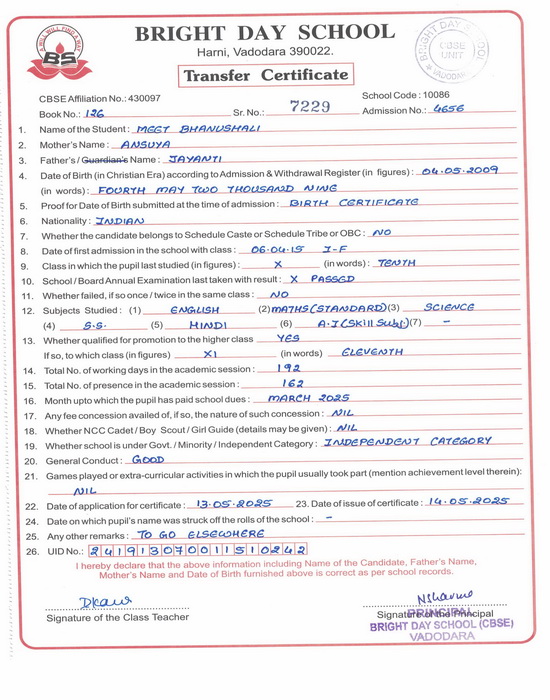 BRIGHT DAY SCHOOL
Harni, Vadodara 390022.
BRIGHT DAY SCHOOL
CBSE
UNIT
VADODARA
BS
Transfer Certificate
CBSE Affiliation No.: 430097 School Code : 10086
Book No.: 126 Sr. No.: 7229 Admission No.: 4656
1. Name of the Student : MEET BHANUSHALI
2. Mother's Name : ANSUYA
3. Father's / Guardian's Name : JAYANTI
4. Date of Birth (in Christian Era) according to Admission & Withdrawal Register (in figures) : 04.05.2009
(in words) : FOURTH MAY TWO THOUSAND NINE
5. Proof for Date of Birth submitted at the time of admission : BIRTH CERTIFICATE
6. Nationality : INDIAN
7. Whether the candidate belongs to Schedule Caste or Schedule Tribe or OBC : NO
8. Date of first admission in the school with class : 06.04.15 I-F
9. Class in which the pupil last studied (in figures) : X (in words) : TENTH
10. School / Board Annual Examination last taken with result : X PASSED
11. Whether failed, if so once / twice in the same class : NO
12. Subjects Studied : (1) ENGLISH (2) MATHS (STANDARD) (3) SCIENCE
(4) S.S. (5) HINDI (6) A.I (Skill Subj.) (7) –
13. Whether qualified for promotion to the higher class YES
If so, to which class (in figures) XI (in words) ELEVENTH
14. Total No. of working days in the academic session : 192
15. Total No. of presence in the academic session : 162
16. Month upto which the pupil has paid school dues : MARCH 2025
17. Any fee concession availed of, if so, the nature of such concession : NIL
18. Whether NCC Cadet / Boy Scout / Girl Guide (details may be given) : NIL
19. Whether school is under Govt. / Minority / Independent Category : INDEPENDENT CATEGORY
20. General Conduct : GOOD
21. Games played or extra-curricular activities in which the pupil usually took part (mention achievement level therein):
NIL
22. Date of application for certificate : 13.05.2025 23. Date of issue of certificate : 14.05.2025
24. Date on which pupil's name was struck off the rolls of the school : –
25. Any other remarks : TO GO ELSEWHERE
26. UID No.: 241913070011510242
I hereby declare that the above information including Name of the Candidate, Father's Name,
Mother's Name and Date of Birth furnished above is correct as per school records.
DKaur NSharma
Signature of the Class Teacher Signature of the Principal
PRINCIPAL
BRIGHT DAY SCHOOL (CBSE)
VADODARA